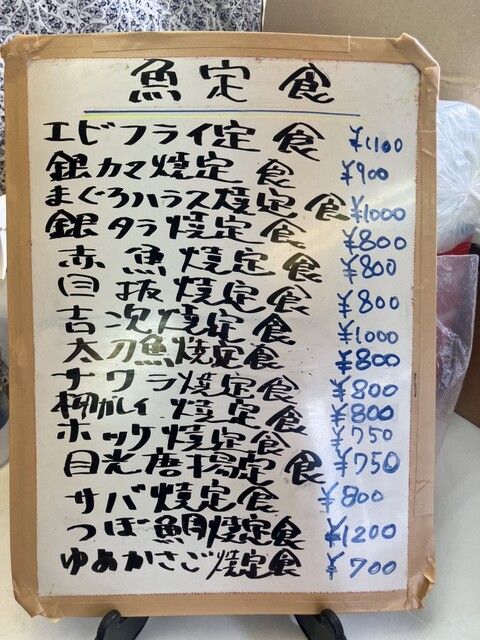 魚定食
エビフライ定食 ¥1100
銀カマ焼定食 ¥900
まぐろハラス焼定食 ¥1000
銀タラ焼定食 ¥800
赤魚焼定食 ¥800
目抜焼定食 ¥800
吉次焼定食 ¥1000
太刀魚焼定食 ¥800
サワラ焼定食 ¥800
柳ガレイ焼定食 ¥800
ホッケ焼定食 ¥750
目光唐揚定食 ¥750
サバ焼定食 ¥800
つぼ鯛焼定食 ¥1200
ゆめかさご焼定食 ¥700